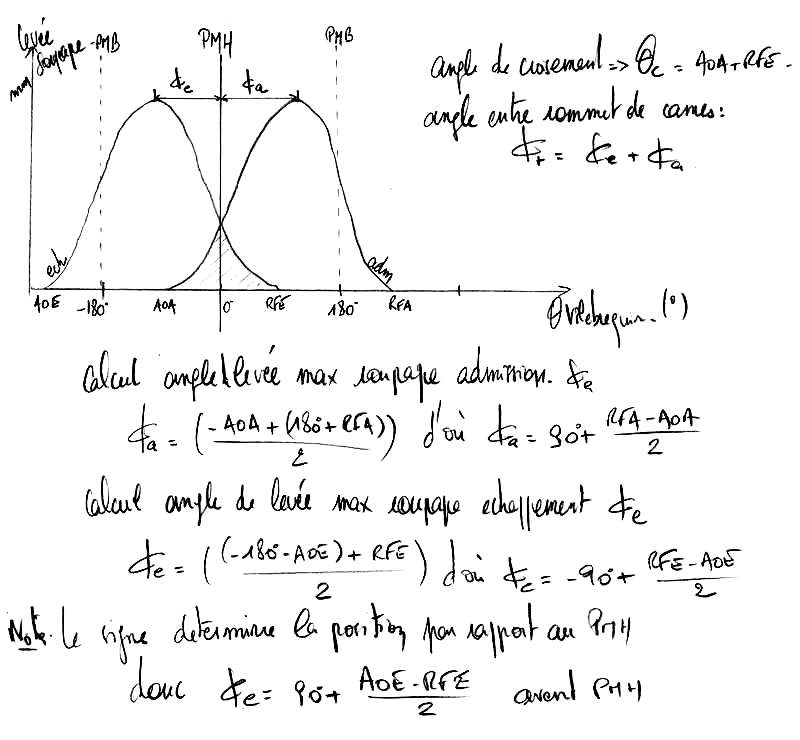 levée soupape mm
-PMB PMH PMB
ϕe ϕa
ech adm
AOE -180° AOA 0° RFE 180° RFA
θ vilebrequin (°)
angle de croisement => θc = AOA+RFE.
angle entre sommet de cames:
ϕt = ϕe + ϕa
Calcul angle levée max soupape admission. ϕa
ϕa = (-AOA + (180° + RFA))/2 d'où ϕa = 90° + (RFA-AOA)/2
Calcul angle de levée max soupape echappement ϕe
ϕe = ((-180° - AOE) + RFE)/2 d'où ϕe = -90° + (RFE-AOE)/2
Note. Le signe determine la position par rapport au PMH
donc ϕe = 90° + (AOE-RFE)/2 avant PMH